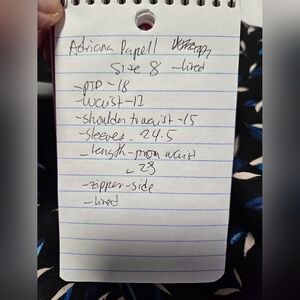 Adriana Papell
Size 8 -lined
-PTP -18
-waist-17
-shoulder to waist-15
-sleeves - 24.5
-length-from waist
- 23
-zipper-side
-lined